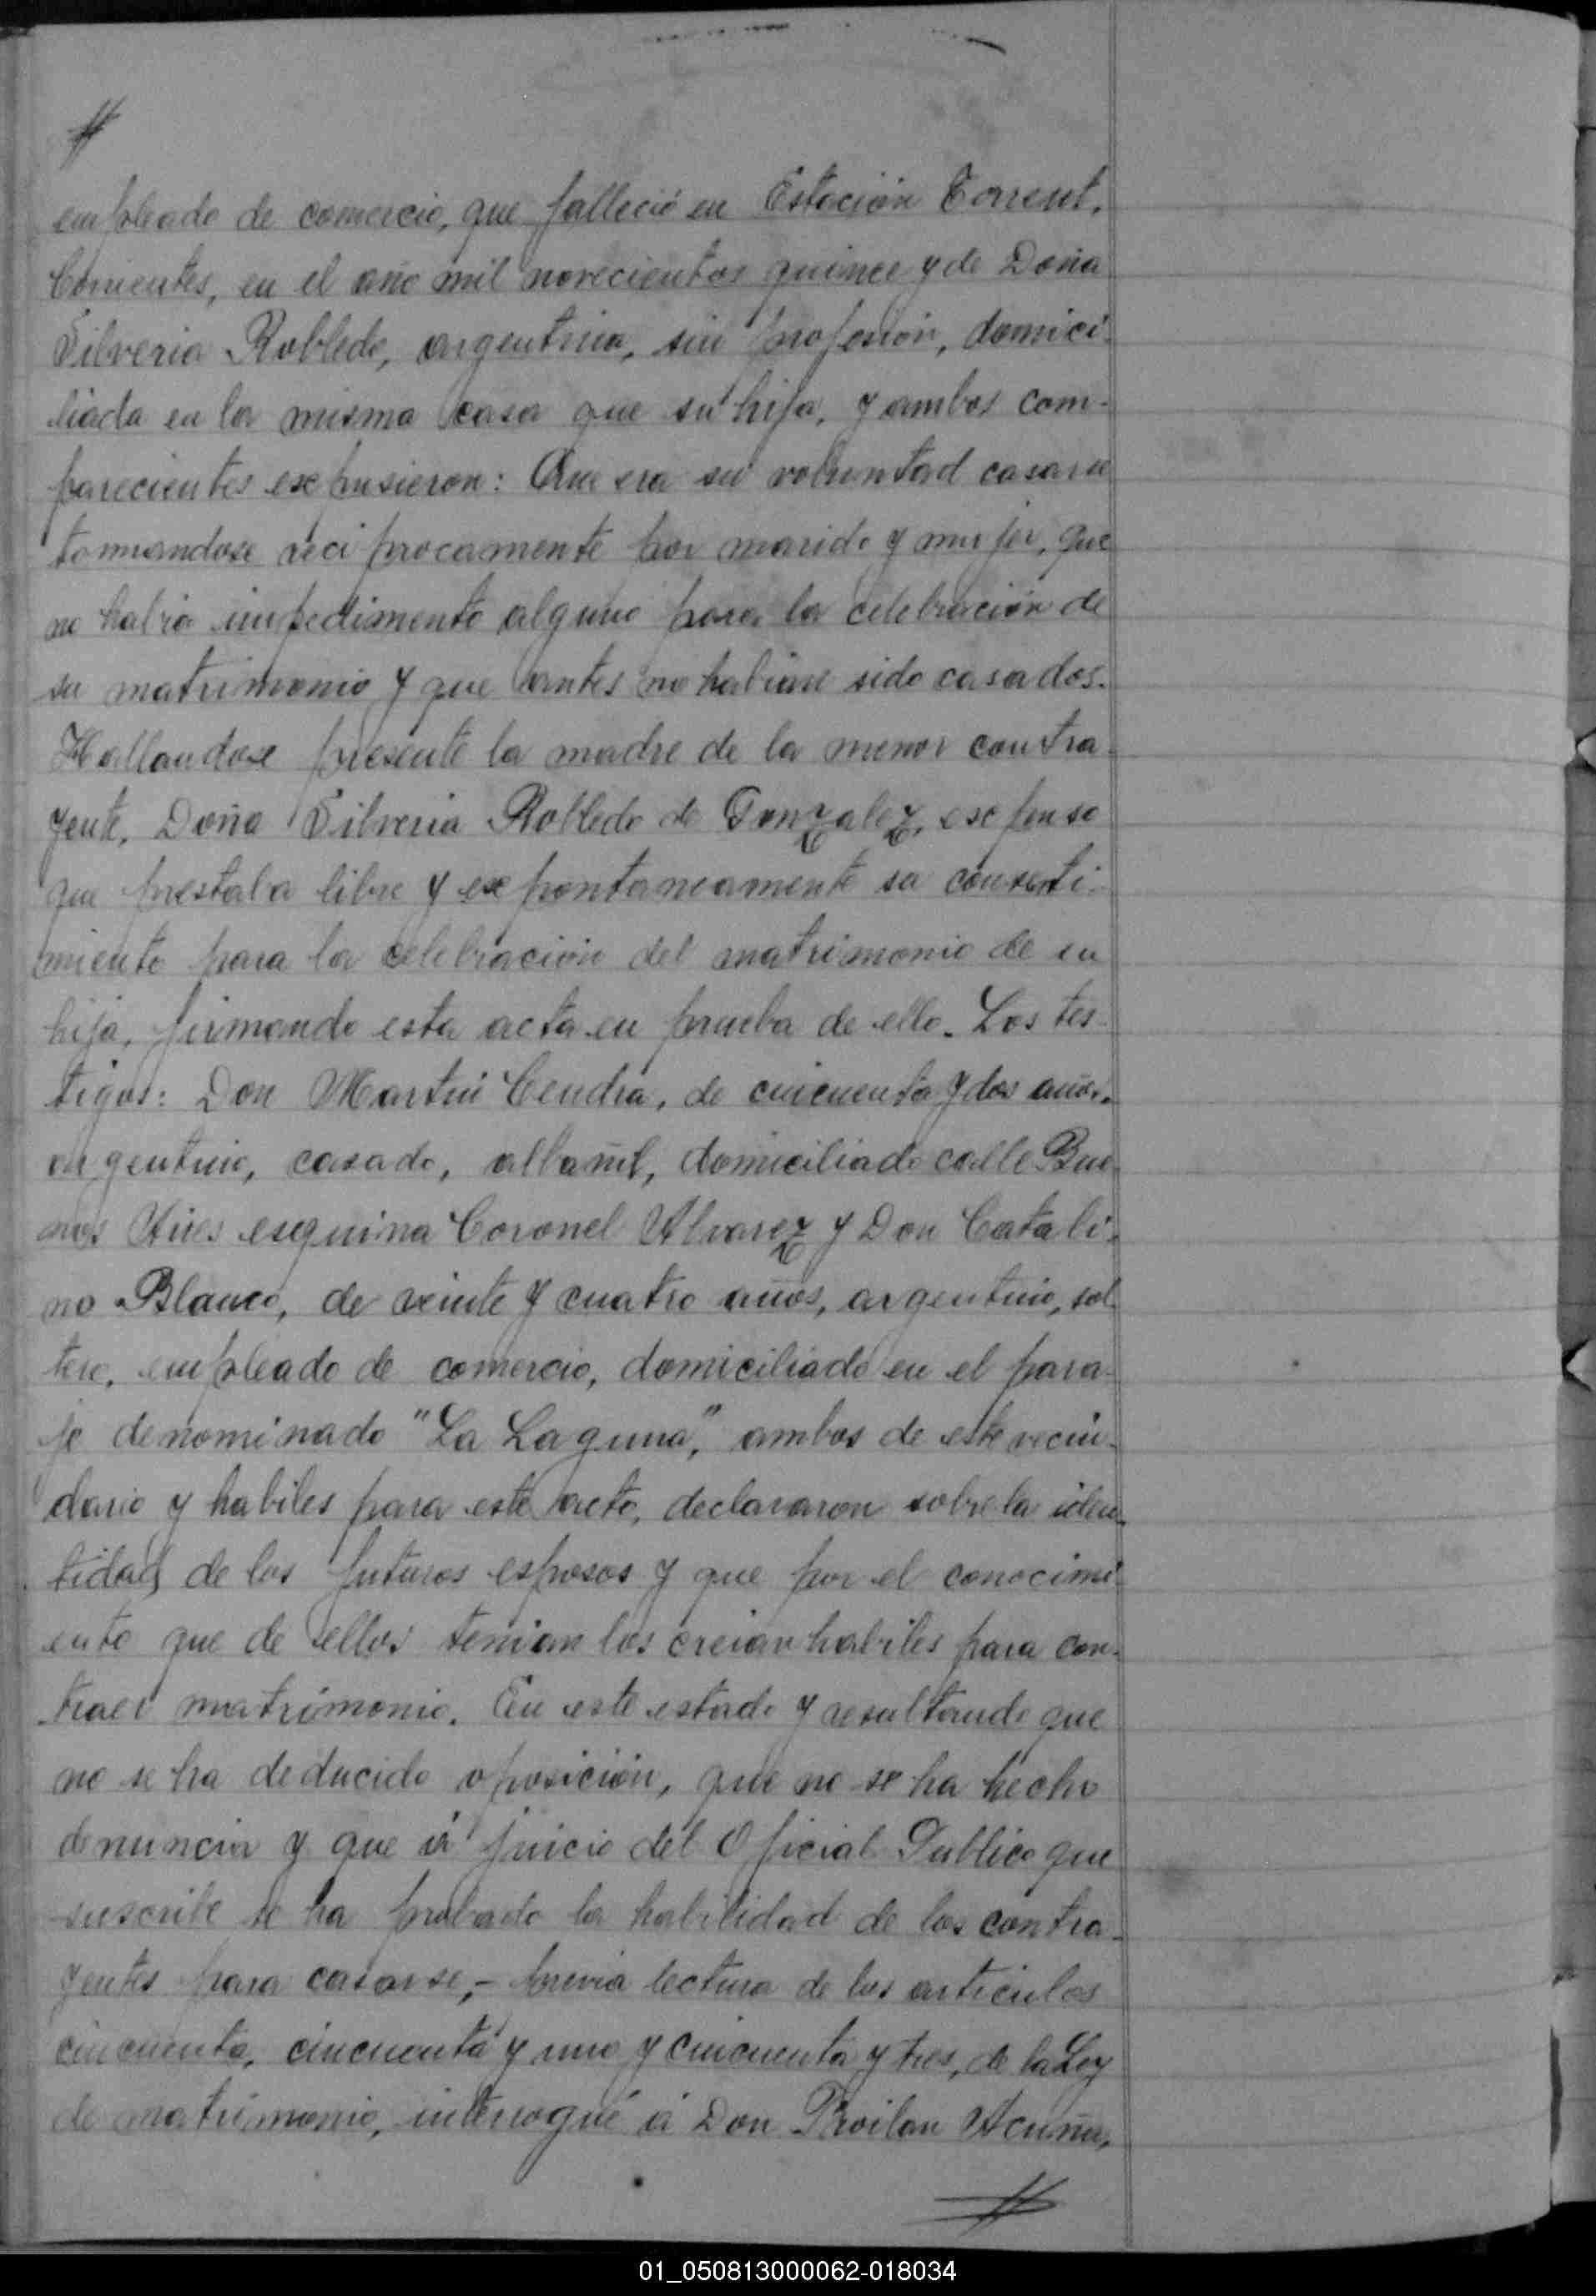 //
empleado de comercio, que falleció en Estación Torrent,
Corrientes, en el año mil novecientos quince y de Doña
Silveria Robledo, argentina, sin profesion, domici-
liada en la misma casa que su hija, y ambos com-
parecientes expusieron: Que era su voluntad casarse
tomandose reciprocamente por marido y mujer, que
no habia impedimento alguno para la celebración de
su matrimonio y que antes no habian sido casados.
Hallandose presente la madre de la menor contra-
yente, Doña Silveria Robledo de Gonzalez, expuso
que prestaba libre y expontaneamente su consenti-
miento para la celebración del matrimonio de su
hija, firmando esta acta en prueba de ello. Los tes-
tigos: Don Martin Cendra, de cincuenta y dos años,
argentino, casado, albañil, domiciliado calle Bue-
nos Aires esquina Coronel Alvarez y Don Catali-
no Blanco, de veinte y cuatro años, argentino, sol-
tero, empleado de comercio, domiciliado en el para-
je denominado "La Laguna", ambos de este vecin-
dario y habiles para este acto, declararon sobre la iden-
tidad de los futuros esposos y que por el conocimi-
ento que de ellos tenian los creian habiles para con-
traer matrimonio. En este estado y resultando que
no se ha deducido oposición, que no se ha hecho
denuncia y que á juicio del Oficial Publico que
suscribe se ha probado la habilidad de los contra-
yentes para casarse,- previa lectura de los articulos
cincuenta, cincuenta y uno y cincuenta y tres, de la Ley
de matrimonio, interrogué á Don Froilan Acuña,
//
01_050813000062-018034